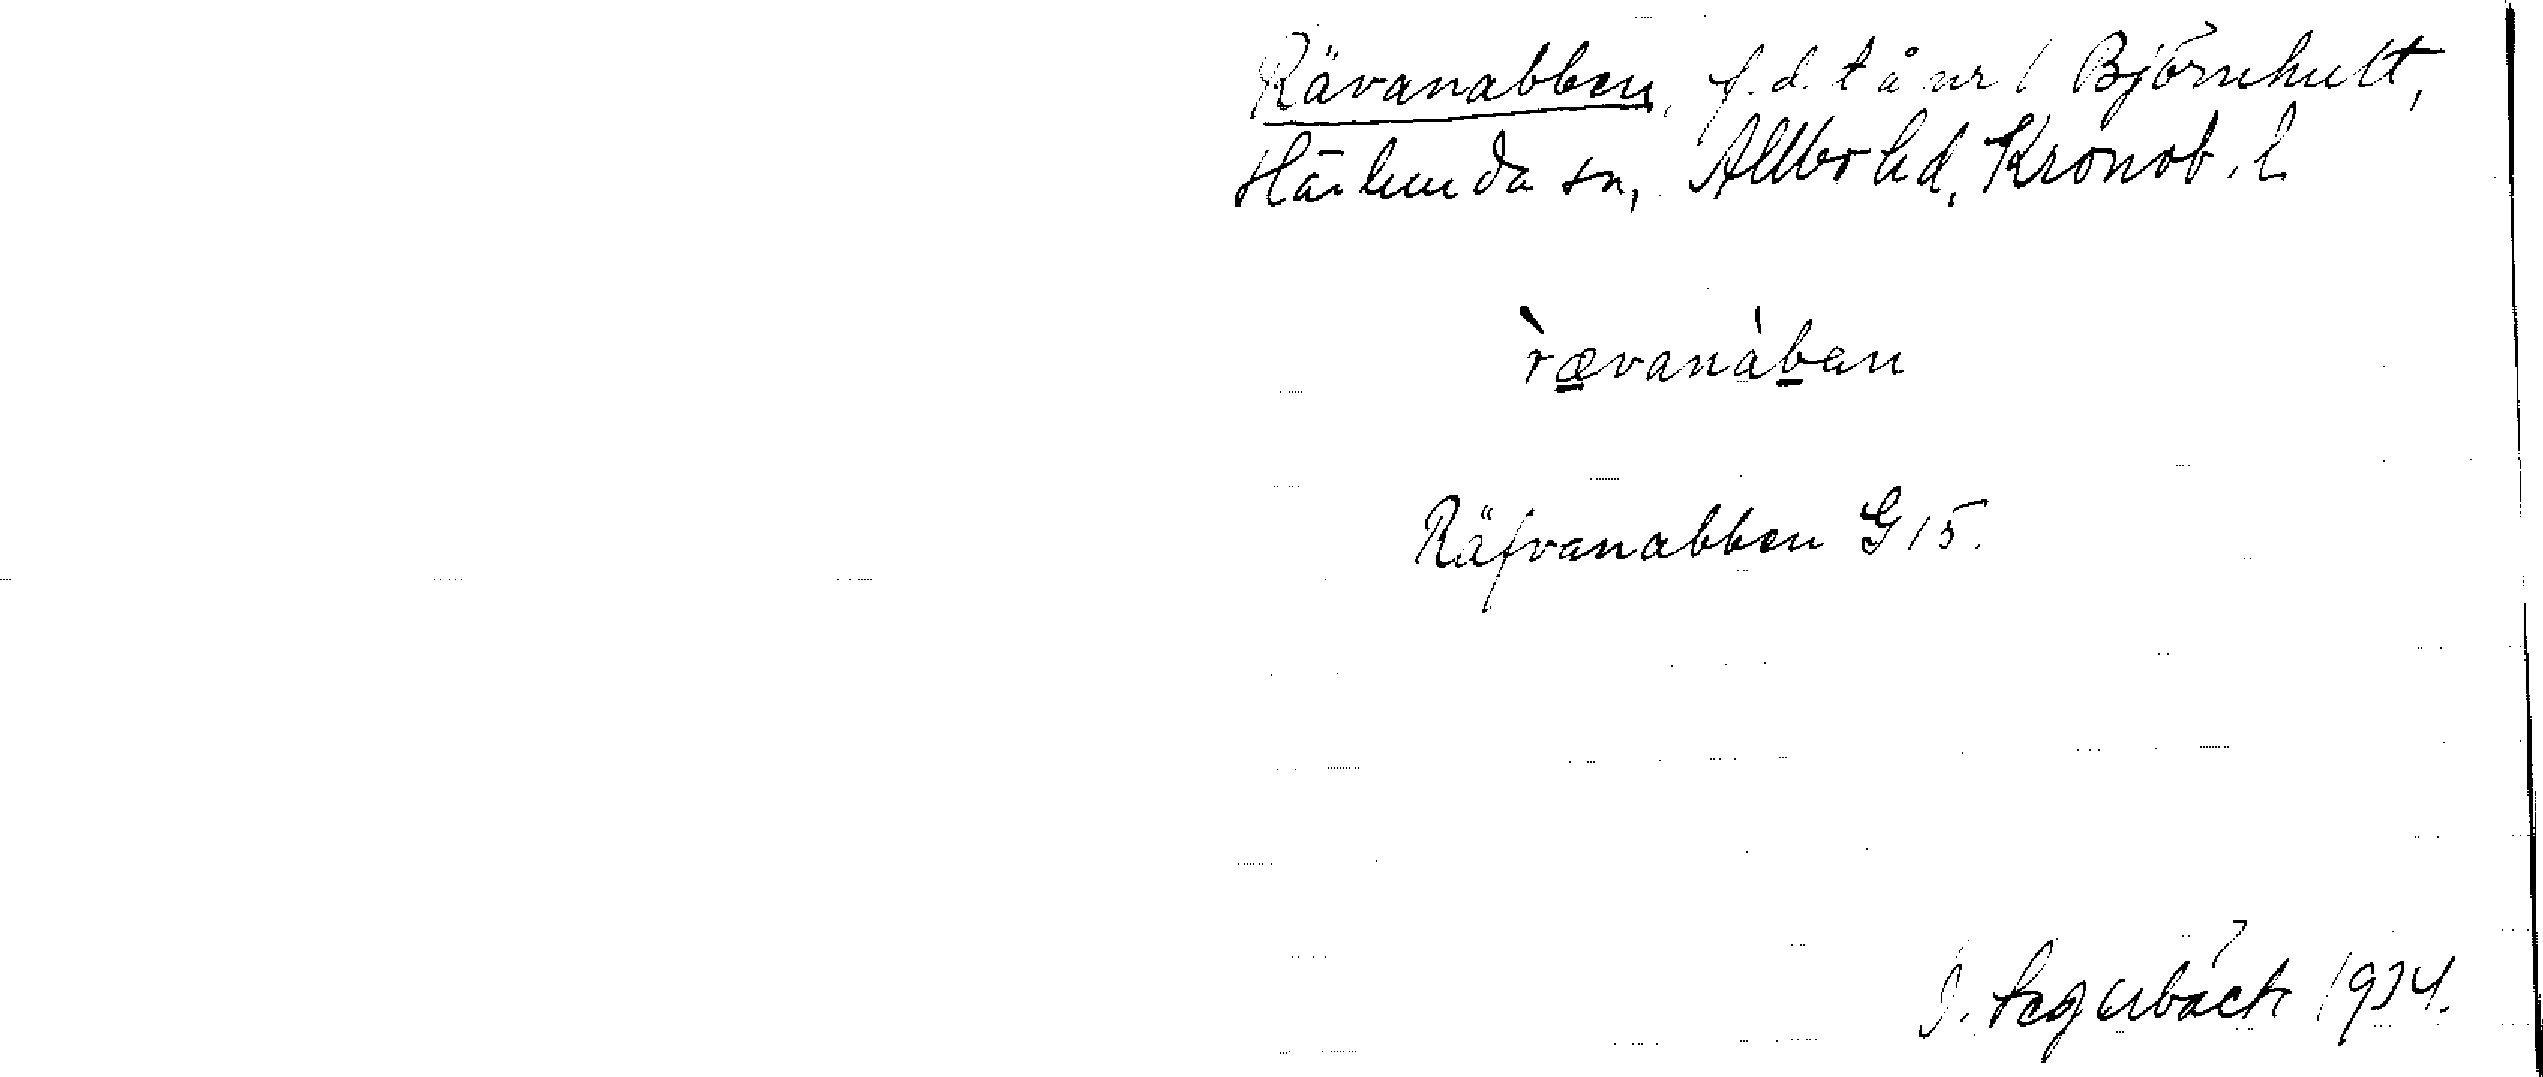 Rävanabben, f.d. t å nr 1 Björnhult,
Härlunda sn, Allbo hd, Kronob. l.
rævanàban
Räfvanabben G 15.
J. Segerbäck 1934.